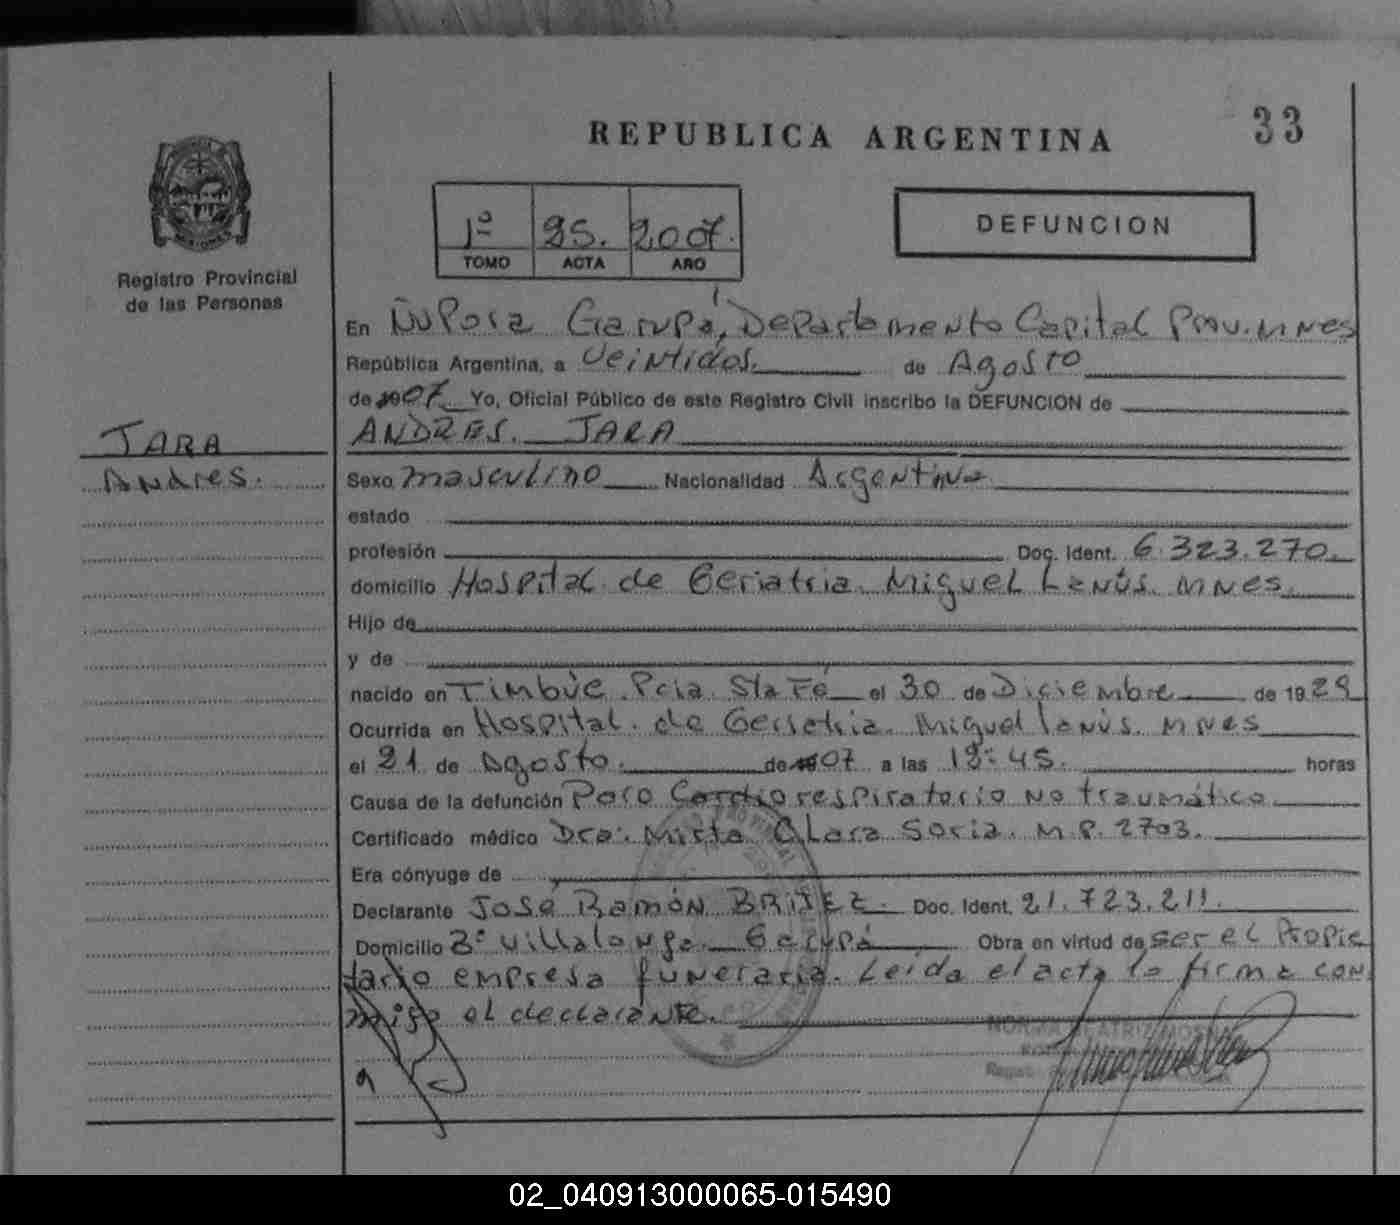 REPUBLICA ARGENTINA
33
1º 25. 2007.
TOMO ACTA AÑO
DEFUNCION
Registro Provincial
de las Personas
JARA
Andres.
En Ñu Pora Garupá, Departamento Capital Prov. Mnes
República Argentina, a Veintidos. de Agosto
de 07. Yo, Oficial Público de este Registro Civil inscribo la DEFUNCION de
ANDRES. JARA
Sexo masculino Nacionalidad Argentina
estado
profesión Doc. Ident. 6.323.270.
domicilio Hospital de Geriatria. Miguel Lanús. Mnes.
Hijo de
y de
nacido en Timbúe Pcia. Sta Fé el 30 de Diciembre de 1929
Ocurrida en Hospital de Geriatria. Miguel lanús. Mnes
el 21 de Agosto. de 07 a las 18:45. horas
Causa de la defunción Paro Cardiorespiratorio No traumático.
Certificado médico Dra: Mirta Clara Soria. M.P. 2703.
Era cónyuge de
Declarante José Ramón BRITEZ. Doc. Ident. 21.723.211.
Domicilio Bº Villalonga Garupá Obra en virtud de ser el Propie
tario empresa funeraria. Leida el acta la firma con
migo el declarante.
NORMA BEATRIZ
02_040913000065-015490